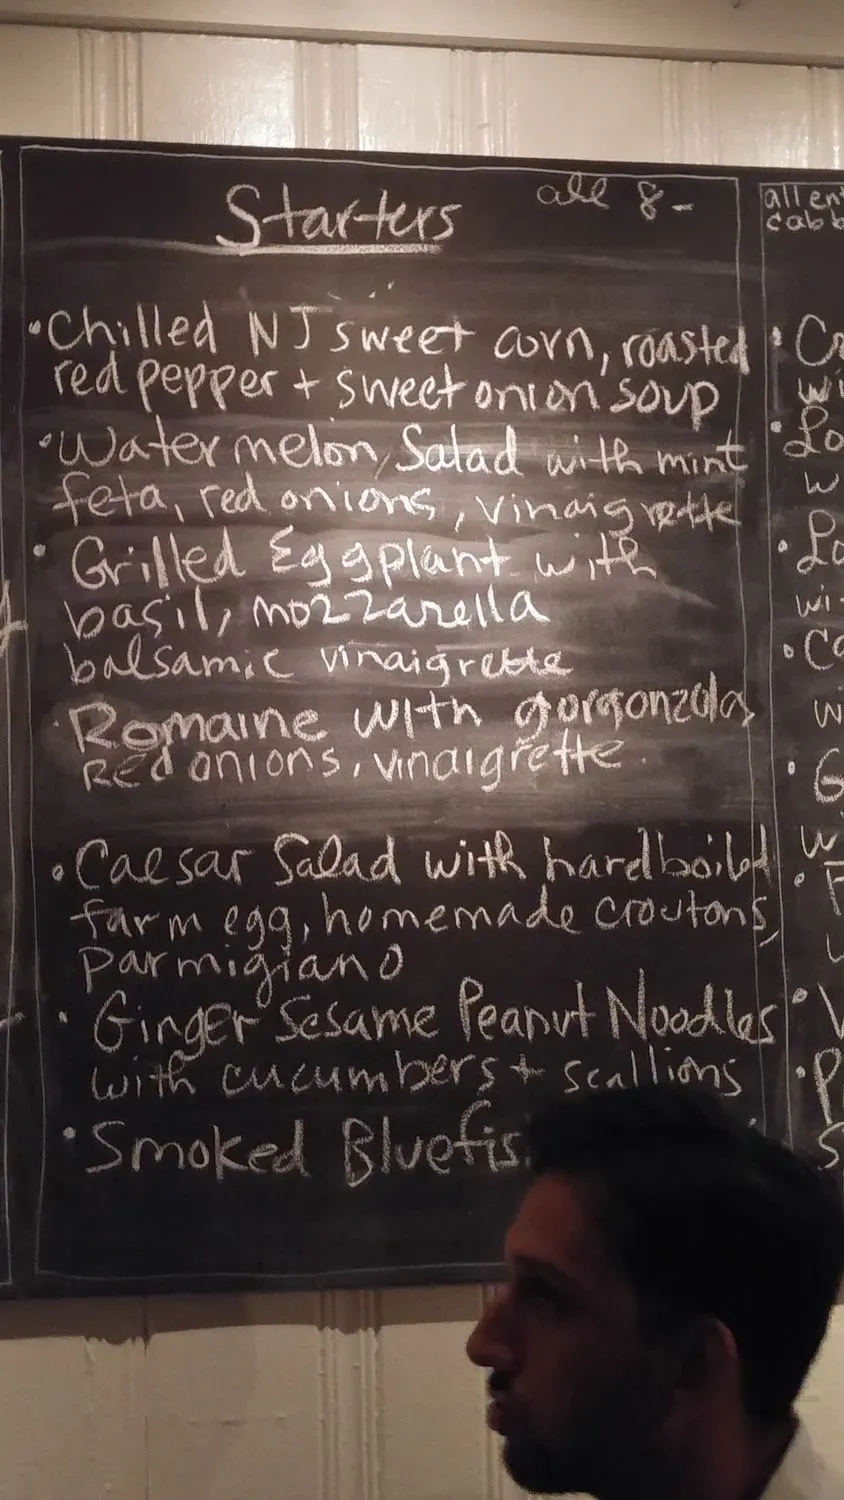 Starters all 8-
• Chilled NJ sweet corn, roasted
red pepper + sweet onion soup
• Watermelon, Salad with mint
feta, red onions, vinaigrette
• Grilled Eggplant with
basil, mozzarella
balsamic vinaigrette
• Romaine with gorgonzola,
Red onions, vinaigrette.
• Caesar Salad with hardboiled
farm egg, homemade croutons,
parmigiano
• Ginger Sesame Peanut Noodles
with cucumbers + scallions
• Smoked Bluefis
all ent
cabb